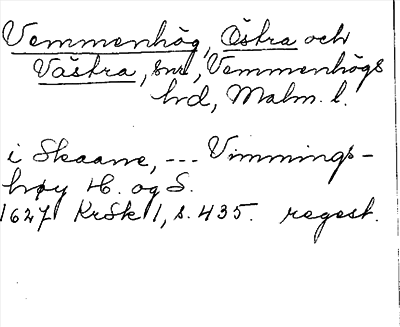 Vemmenhög, Östra och
Västra, snr, Vemmenhögs
hrd, Malm. l.
i Skaane, --- Vimmings-
høy H. og S.
1627 KrSk 1, s. 435. regest.